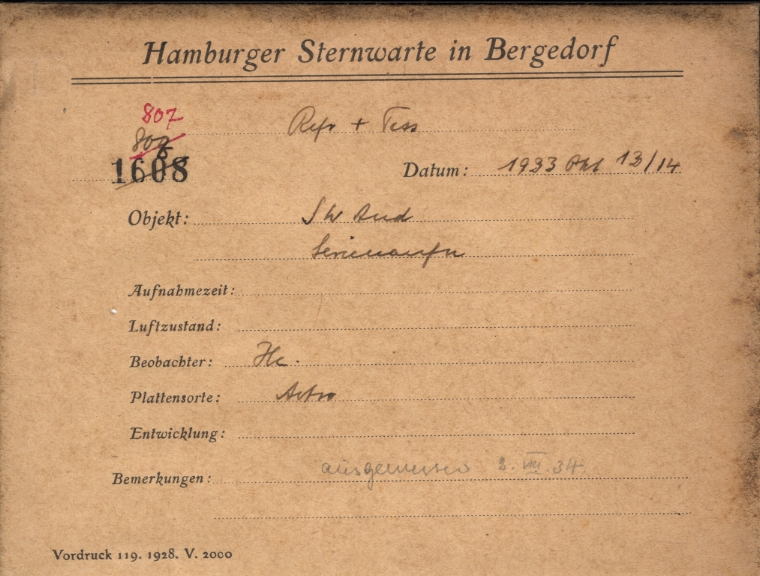 Hamburger Sternwarte in Bergedorf
807
Refr + Tess
1608
Datum: 1933 Okt 13/14
Objekt: SW And
Serienaufn
Aufnahmezeit:
Luftzustand:
Beobachter: Hc.
Plattensorte: Astro
Entwicklung:
Bemerkungen: ausgemessen 2. VIII. 34
Vordruck 119. 1928. V. 2000